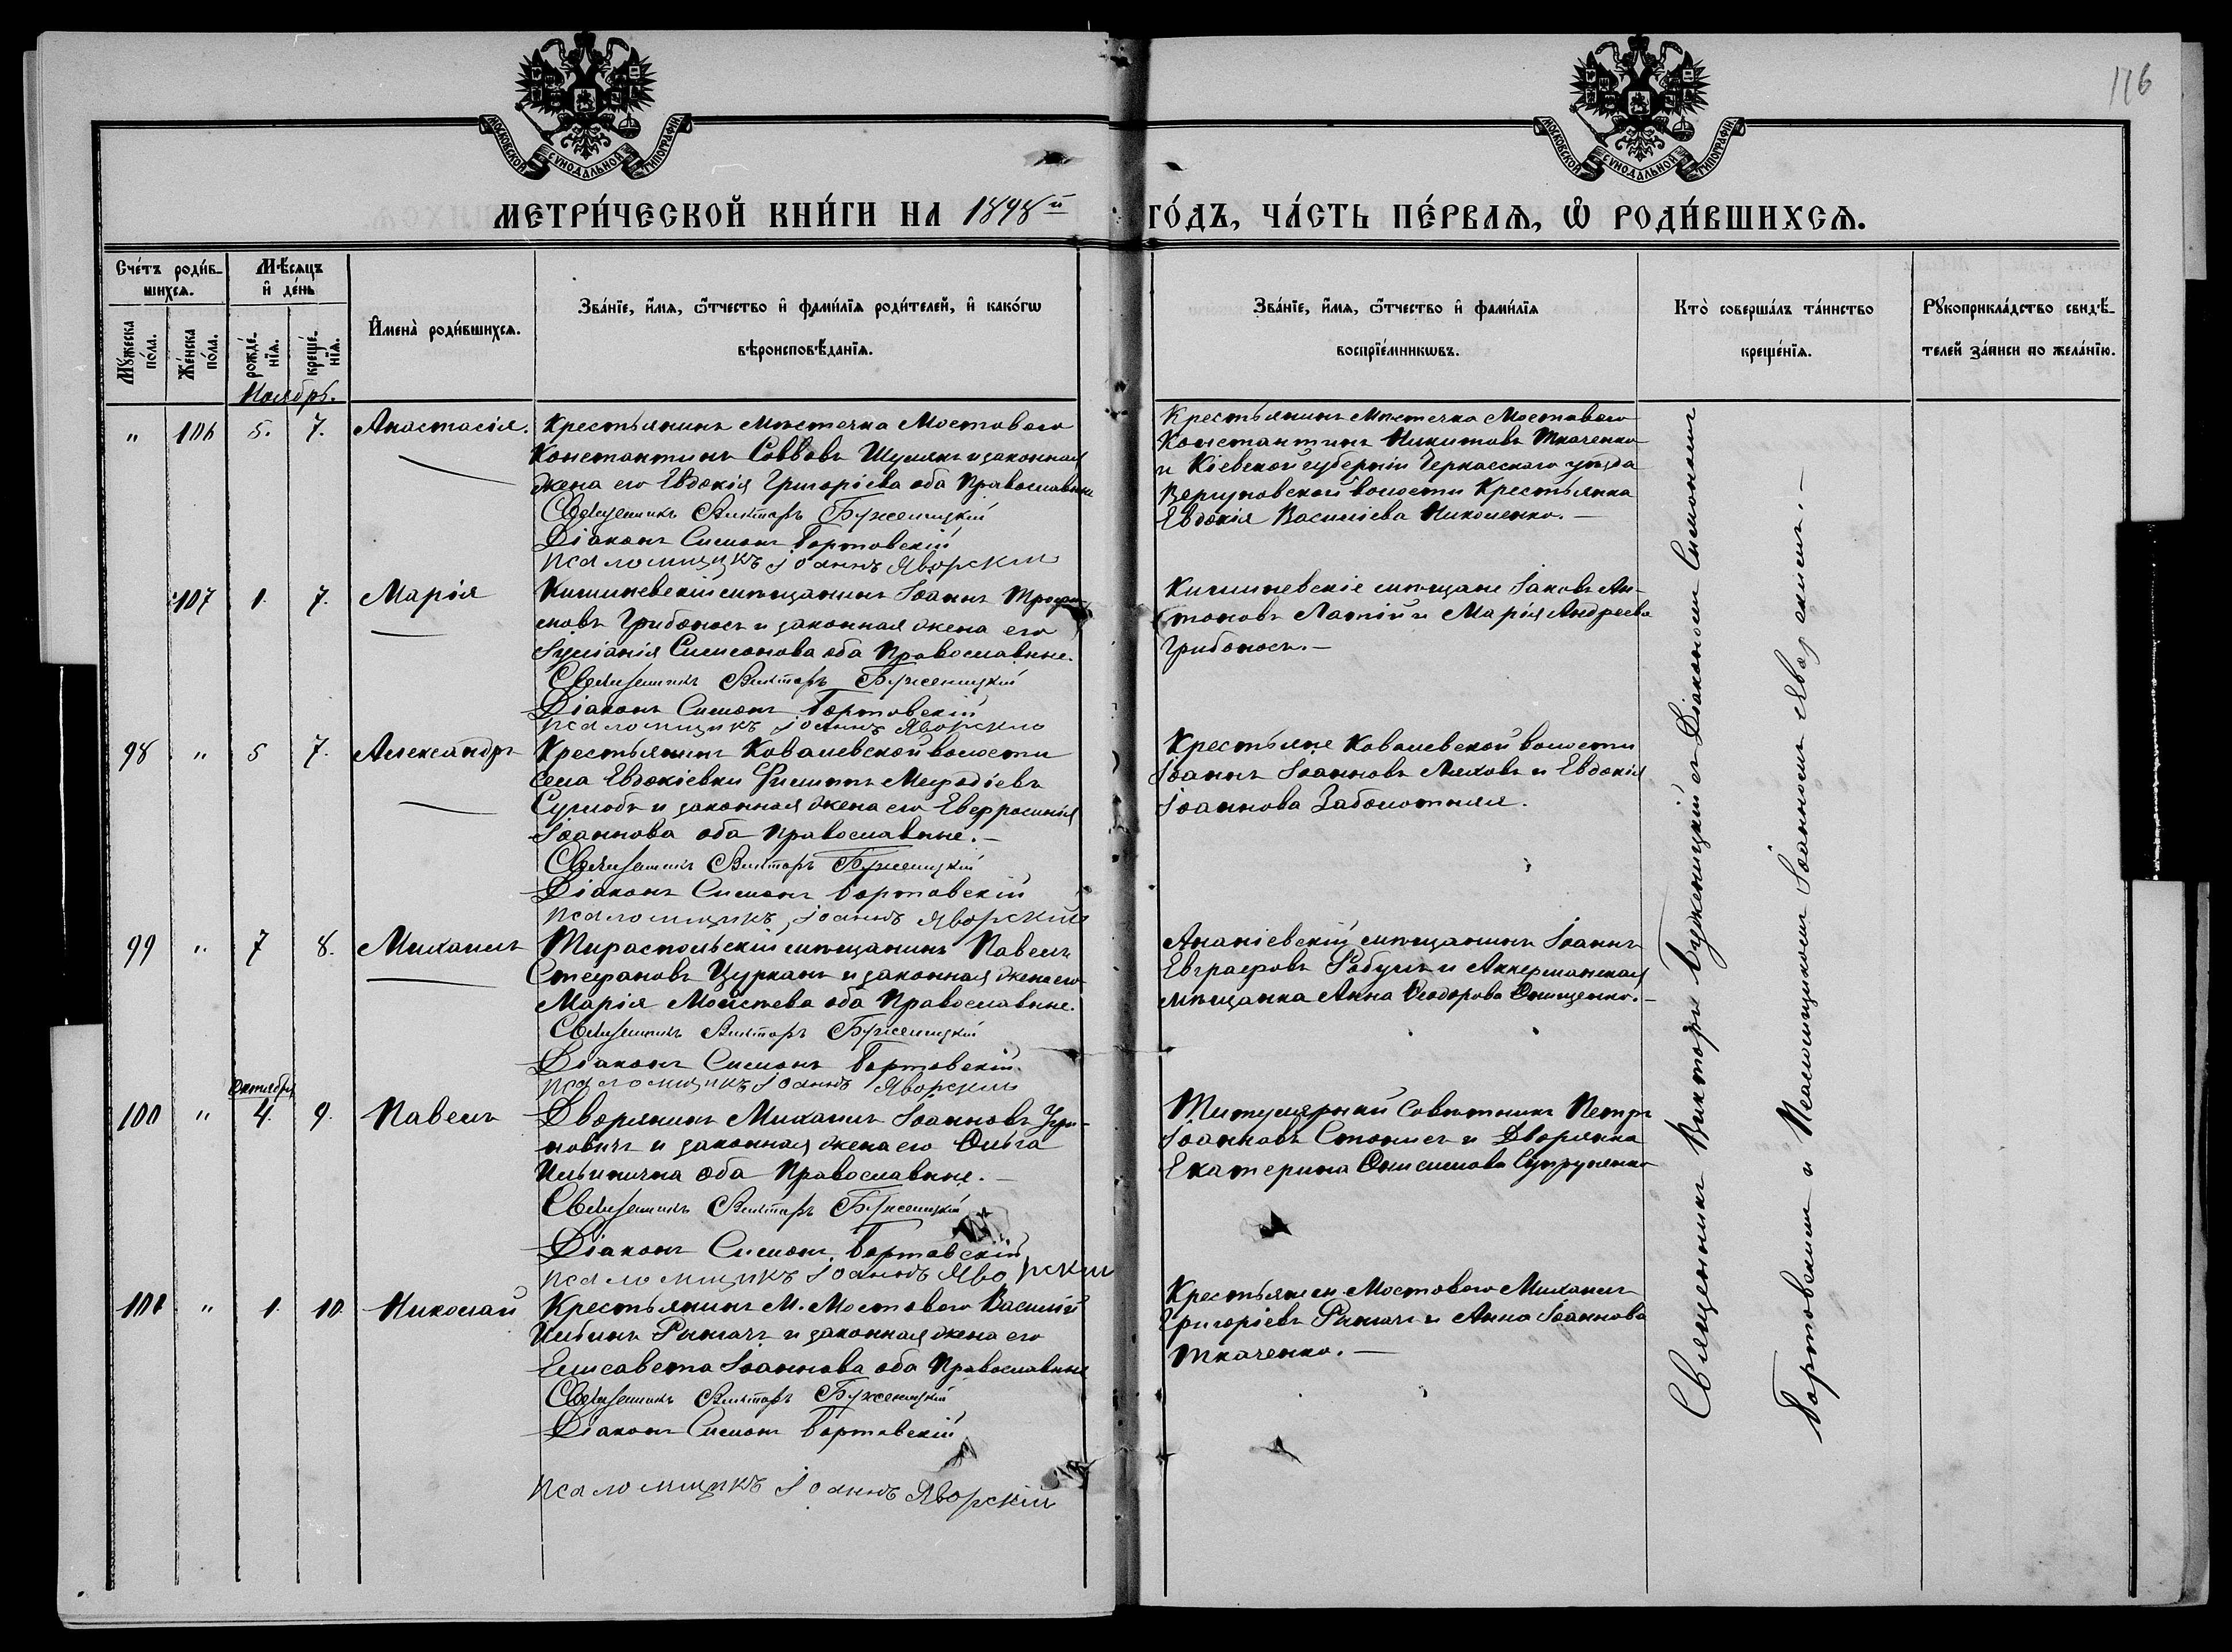 116
МОСКОВСКОЙ СѴНОДАЛЬНОЙ ТИПОГРАФІИ
МОСКОВСКОЙ СѴНОДАЛЬНОЙ ТИПОГРАФІИ
МЕТРИ́ЧЕСКОЙ КНИ́ГИ НА 1898й ГО́ДЪ, ЧА́СТЬ ПЕ́РВАѦ, Ѡ҆ РОДИ́ВШИХСѦ.
Сче́тъ роди́в-
шихсѧ.
Мѣ́сѧцъ
и҆ де́нь
Мꙋ́жеска
по́ла.
Же́нска
по́ла.
рожде́-
нїѧ.
креще́-
нїѧ.
И҆мена̀ роди́вшихсѧ.
Зва́нїе, и҆́мѧ, ѻ҆́тчество и҆ фами́лїѧ роди́телей, и҆ како́гѡ
вѣроисповѣ́данїѧ.
Зва́нїе, и҆́мѧ, ѻ҆́тчество и҆ фами́лїѧ
воспрїе́мникѡвъ.
Кто̀ соверша́лъ та́инство
креще́нїѧ.
Рꙋкоприкла́дство свидѣ́-
телей за́писи по жела́нїю.
Ноябрь.
" 106 5. 7. Анастасія.
Крестьянинъ мѣстечка Мостового
Константинъ Саввовъ Шумякъ и законная
жена его Евдокія Григоріева оба Православные
Священникъ Викторъ Буженицкій
Діаконъ Симеонъ Бортовскій
Псаломщикъ Іоаннъ Яворскій
Крестьянинъ Мѣстечка Мостового
Константинъ Никитовъ Ткаченко
и Кіевской губерніи Черкасскаго уѣзда
волости Крестьянка
Евдокія Василіева Николенко.
107 1. 7. Марія
Кишиневскій мѣщанинъ Іоаннъ Трофи-
мовъ Грибоносъ и законная жена его
Іуліанія Симеонова оба Православные.
Священникъ Викторъ Буженицкій
Діаконъ Симеонъ Бортовскій
Псаломщикъ Іоаннъ Яворскій
Кишиневскіе мѣщане Іаковъ Ан-
тоновъ Латій и Марія Андреева
Грибоносъ.
98 " 5 7. Александръ
Крестьянинъ Ковалевской волости
села Евдокіевки Филиппъ Мефодіевъ
и законная жена его Евфросинія
Іоаннова оба Православные.
Священникъ Викторъ Буженицкій
Діаконъ Симеонъ Бортовскій
Псаломщикъ Іоаннъ Яворскій
Крестьяне Ковалевской волости
Іоаннъ Іоанновъ Ляховъ и Евдокія
Іоаннова Заболотняя.
99 " 7 8. Михаилъ
Тираспольскій мѣщанинъ Павелъ
Стефановъ Цурканъ и законная жена его
Марія Моисеева оба Православные.
Священникъ Викторъ Буженицкій
Діаконъ Симеонъ Бортовскій
Псаломщикъ Іоаннъ Яворскій
Ананіевскій мѣщанинъ Іоаннъ
Евграфовъ Робулъ и Аккерманская
мѣщанка Анна Ѳеодорова Онищенко.
Октября
100 " 4. 9. Павелъ
Дворянинъ Михаилъ Іоанновъ
и законная жена его Ольга
Ильинична оба Православные.
Священникъ Викторъ Буженицкій
Діаконъ Симеонъ Бортовскій
Псаломщикъ Іоаннъ Яворскій
Титулярный Совѣтникъ Петръ
Іоанновъ и Дворянка
Екатерина Онисимова Супруненко
101 " 1. 10. Николай
Крестьянинъ М. Мостового Василій
Ильинъ Ринкачъ и законная жена его
Елисавета Іоаннова оба Православные
Священникъ Викторъ Буженицкій
Діаконъ Симеонъ Бортовскій
Псаломщикъ Іоаннъ Яворскій
Крестьяне м. Мостового Михаилъ
Григоріевъ Ринкачъ и Анна Іоаннова
Ткаченко.
Священникъ Викторъ Буженицкій съ Діакономъ Симеономъ
Бортовскимъ и Псаломщикомъ Іоанномъ Яворскимъ.